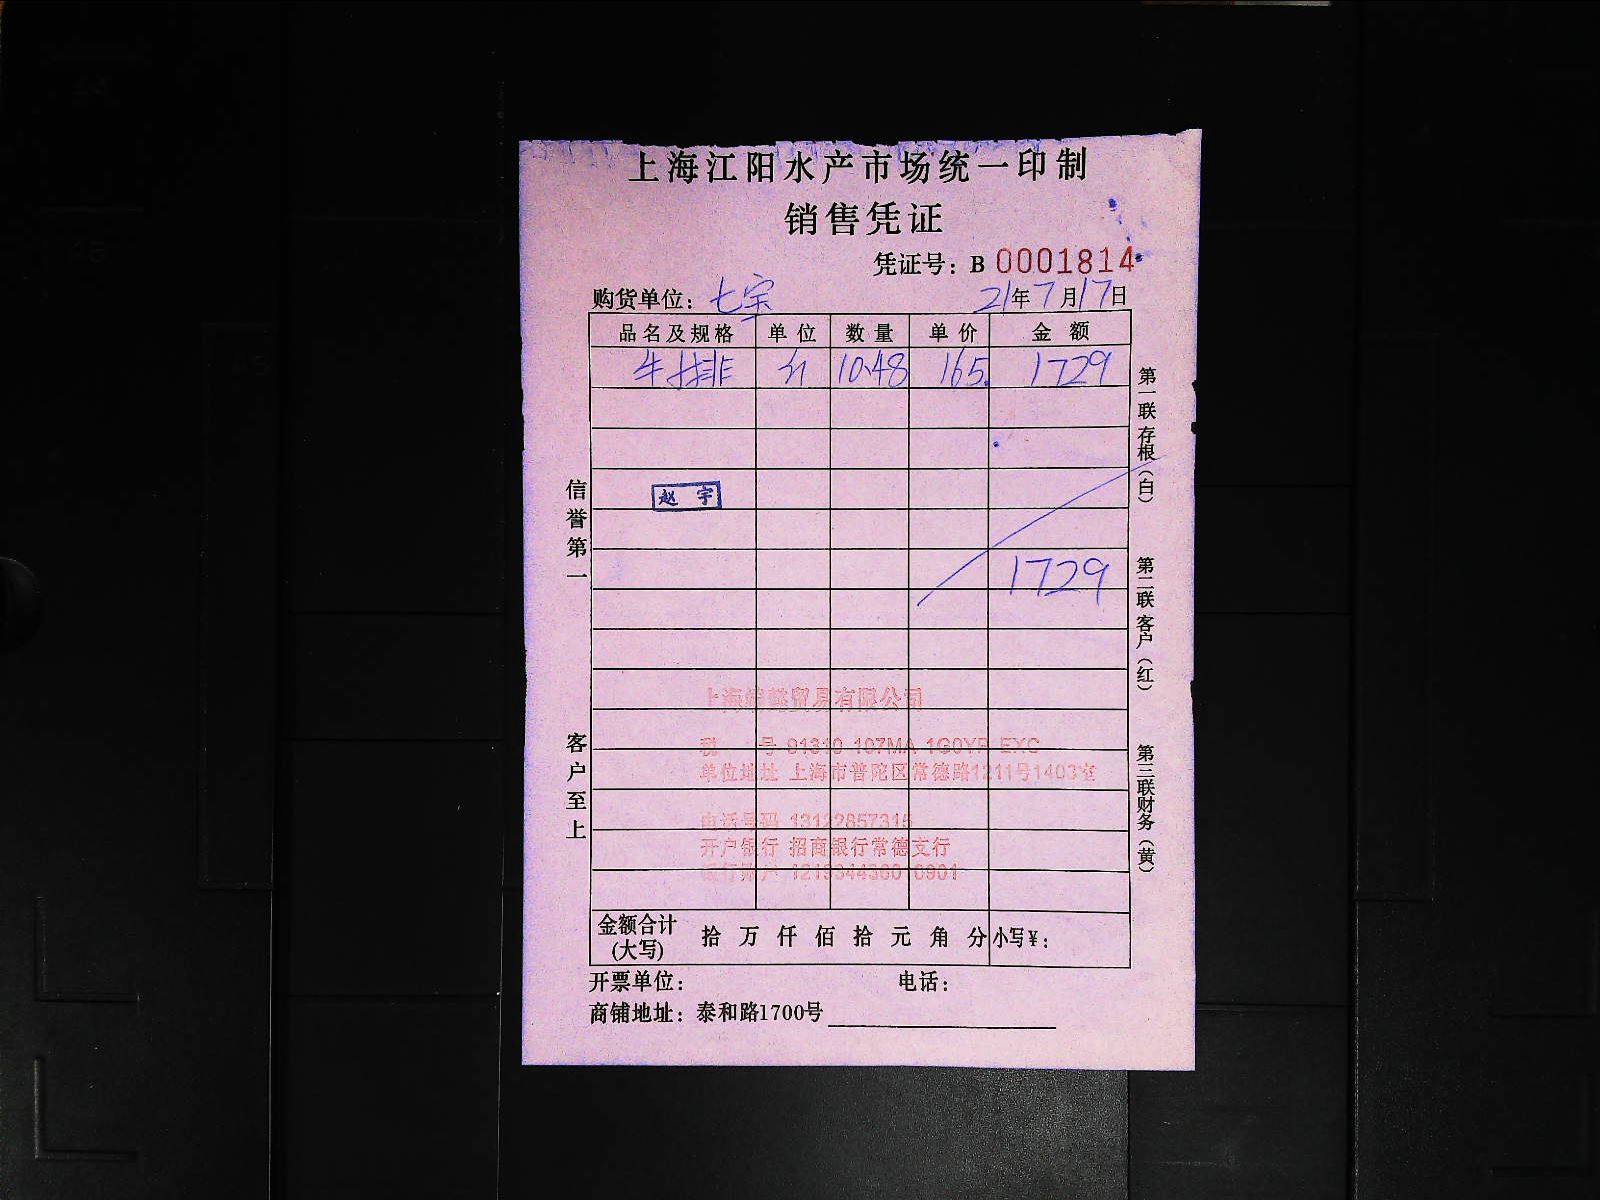 上海江阳水产市场统一印制
销售凭证
凭证号：B 0001814
购货单位：七宝 21年7月17日
品名及规格 单位 数量 单价 金额
牛排 10.48 165. 1729
赵宇
1729
上海 贸易有限公司
税 号 91310 107MA 1G0YF EXC
单位地址 上海市普陀区常德路1211号1403室
电话号码 13122857315
开户银行 招商银行常德支行
银行账户
金额合计(大写) 拾 万 仟 佰 拾 元 角 分 小写¥：
开票单位： 电话：
商铺地址：泰和路1700号
信誉第一
客户至上
第一联存根（白）
第二联客户（红）
第三联财务（黄）